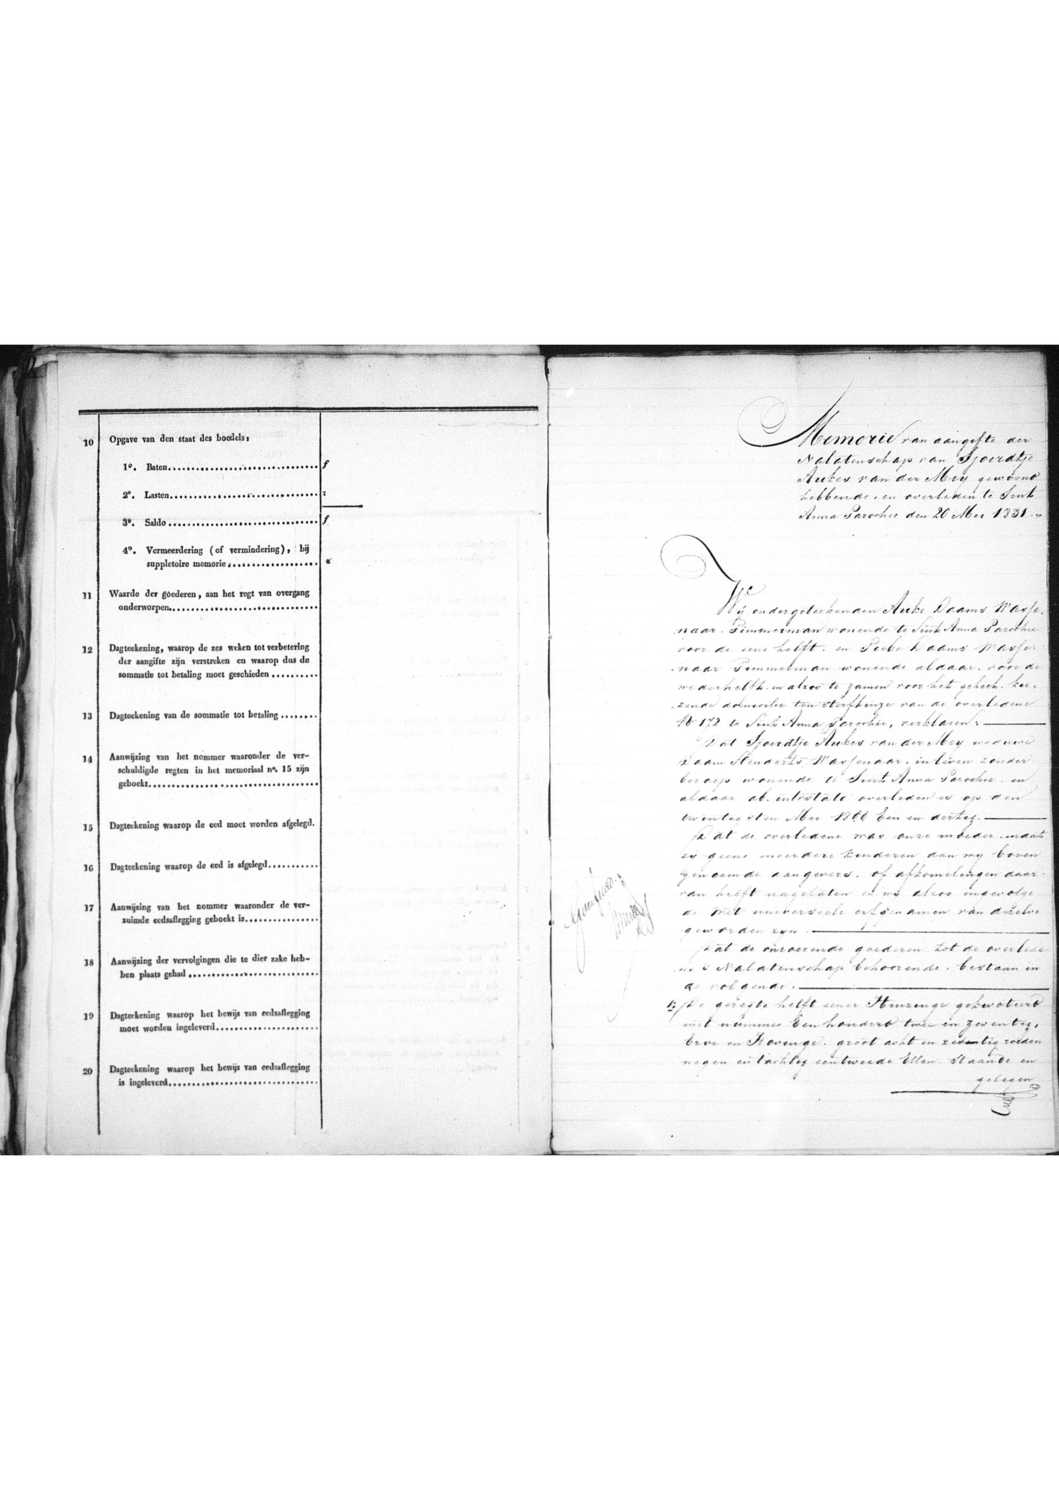 10 Opgave van den staat des boedels:
1º. Baten........ f
2º. Lasten........ :
3º. Saldo........ f
4º. Vermeerdering (of vermindering), bij
suppletoire memorie........ «
11 Waarde der goederen, aan het regt van overgang
onderworpen........
12 Dagteekening, waarop de zes weken tot verbetering
der aangifte zijn verstreken en waarop dus de
sommatie tot betaling moet geschieden........
13 Dagteekening van de sommatie tot betaling.......
14 Aanwijzing van het nommer waaronder de ver-
schuldigde regten in het memoriaal nº. 15 zijn
geboekt........
15 Dagteekening waarop de eed moet worden afgelegd.
16 Dagteekening waarop de eed is afgelegd........
17 Aanwijzing van het nommer waaronder de ver-
zuimde eedsaflegging geboekt is........
18 Aanwijzing der vervolgingen die te dier zake heb-
ben plaats gehad........
19 Dagteekening waarop het bewijs van eedsaflegging
moet worden ingeleverd........
20 Dagteekening waarop het bewijs van eedsaflegging
is ingeleverd........
Memorie van aangifte der
Nalatenschap van Sjoerdtje
Aukes van der Meij gewoond
hebbende en overleden te Sint
Anna Parochie den 20 Mei 1831.
Wij ondergeteekenden Auke Daams Wasse-
naar Timmerman wonende te Sint Anna Parochie
voor de eene helft en Daams Wasse
naar Timmerman wonende aldaar voor de
wederhelft en alzoo te zamen voor het geheel kie-
zende domicilie ten sterfhuize van de overledene
te Sint Anna Parochie, verklaren:
Dat Sjoerdtje Aukes van der Meij weduwe
Daam Wassenaar, in leven zonder
beroep wonende te Sint Anna Parochie en
aldaar ab intestato overleden is op den
twintigsten Mei 1800 een en dertig.
Dat de overledene was onze moeder, naast
geene meerdere kinderen dan wij boven
genoemde aangevers, of afkomelingen daar-
van heeft nagelaten en wij alzoo ingevolge
de Wet universeele erfgenamen van dezelve
geworden zijn.
Dat de onroerende goederen tot de overlede
ne's Nalatenschap behoorende, bestaan in
de volgende.
De geregte helft eener Huizinge gekwoteerd
met nummer Een honderd twee en zeventig,
Erve en Hovinge groot acht en roeden
negen en tachtig Ellen, staande en
gelegen